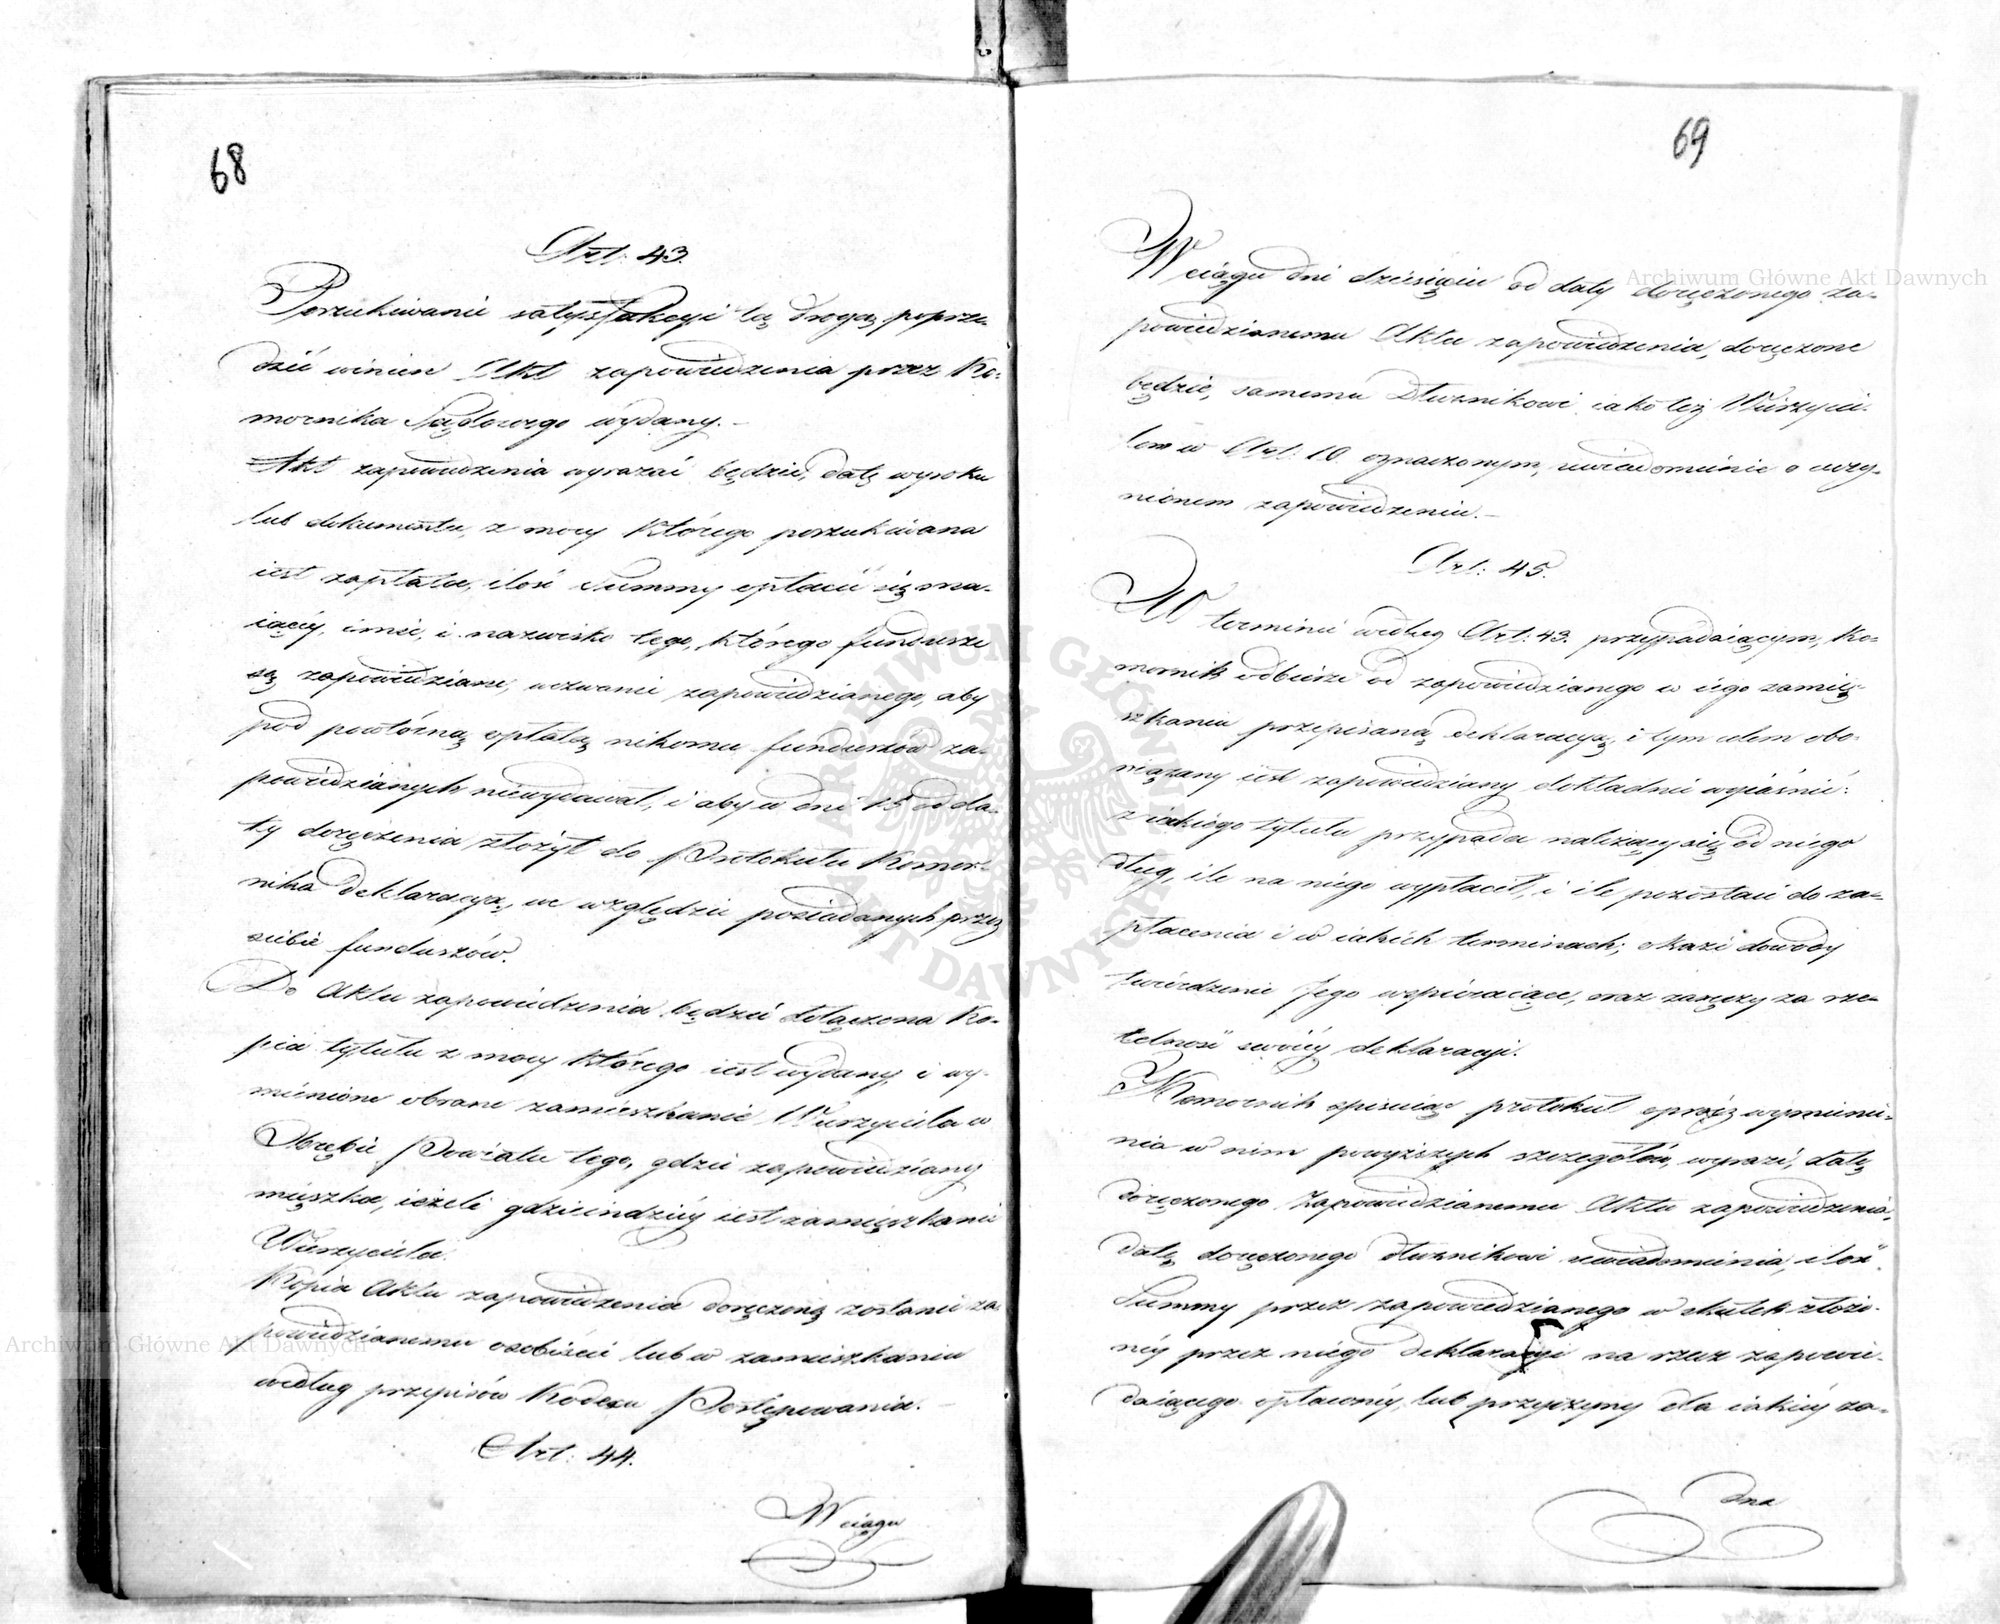 68
Art: 43.
Poszukiwanie satysfakcyi tą drogą, poprze-
dzić winien Akt zapowiedzenia przez Ko-
mornika Sądowego wydany.
Akt zapowiedzenia wyrażać będzie, datę wyroku
lub dokumentu, z mocy którego poszukiwana
iest zapłata, ilość Summy opłacić się ma-
iącéy, imie, i nazwisko tego, którego fundusze
są zapowiedziane, wezwanie zapowiedzianego, aby
pod powtórną opłatą nikomu funduszów za-
powiedzianych niewydawał, i aby w dni 15 od da-
ty doręczenia złożył do Protokułu Komor-
nika deklaracyą, we względzie posiadanych przez
siebie funduszów.
Do Aktu zapowiedzenia będzie dołączona Ko-
pia tytułu z mocy którego iest wydany, i wy-
mienione obrane zamieszkanie Wierzyciela w
Obrębie Powiatu tego, gdzie zapowiedziany
mieszka, ieżeli gdzieindziéy iest zamięszkanie
Wierzyciela.
Kopia Aktu zapowiedzenia doręczoną zostanie za-
powiedzianemu osobiście lub w zamieszkaniu
według przepisów Kodexu Postępowania.
Art: 44.
W ciągu
69
W ciągu dni dziesięciu od daty doręczonego za-
powiedzianemu Aktu zapowiedzenia, doręczone
będzie, samemu Dłużnikowi iako też Wierzycie-
lom w Art: 10 oznaczonym, uwiadomienie o uczy-
nionem zapowiedzeniu.
Art: 45.
W terminie według Art: 43. przypadaiącym, Ko-
mornik odbierze od zapowiedzianego w iego zamię-
szkaniu przepisaną deklaracyą, i tym celem obo-
wiązany iest zapowiedziany dokładnie wyiaśnić:
z iakiego tytułu przypada należący się od niego
dług, ile na niego wypłacił, i ile pozostaie do za-
płacenia i w iakich terminach; okaże dowody
twierdzenie Jego wspieraiące, oraz zaręczy za rze-
telność swoiéy deklaracyi.
Komornik spisuiąc protokuł oprócz wymienie-
nia w nim powyższych szczegółów, wyrazi, datę
doręczonego Zapowiedzianemu Aktu zapowiedzenia,
datę doręczonego dłużnikowi uwiadomienia, ilość
Summy przez zapowiedzianego w skutek złożo-
néy przez niego deklaracyi na rzecz zapowie-
daiącego opłaconéy, lub przyczyny dla iakiéy za-
dna
Archiwum Główne Akt Dawnych
Archiwum Główne Akt Dawnych
ARCHIWUM GŁÓWNE AKT DAWNYCH